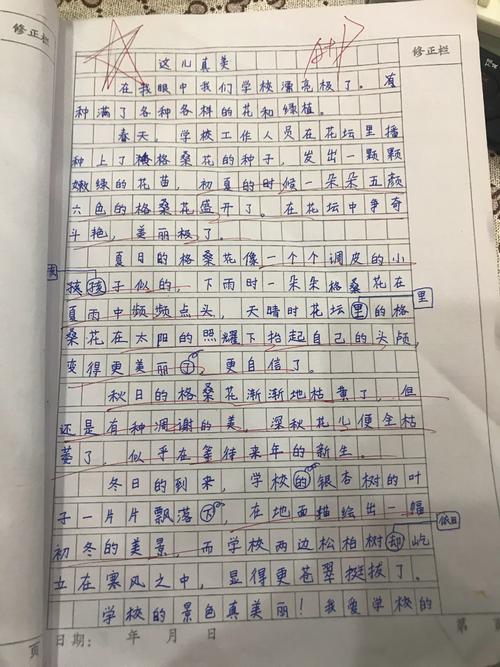 修正栏
A+
修正栏
这儿真美
在我眼中我们学校漂亮极了。有
种满了各种各样的花和绿植。
春天。学校工作人员在花坛里播
种上了格桑花的种子，发出一颗颗
嫩绿的花苗，初夏的时候一朵朵五颜
六色的格桑花盛开了。在花坛中争奇
斗艳，美丽极了。
夏日的格桑花像一个个调皮的小
孩孩子似的，下雨时一朵朵格桑花在
里
夏雨中频频点头，天晴时花坛里的格
桑花在太阳的照耀下抬起自己的头颅，
变得更美丽了，更自信了。
秋日的格桑花渐渐地枯黄了，但
还是有种凋谢的美。深秋花儿便全枯
萎了，似乎在等待来年的新生。
冬日的到来，学校的银杏树的叶
子一片片飘落下，在地面描绘出一幅
依旧
初冬的美景，而学校两边松柏树却屹
立在寒风之中，显得更苍翠挺拔了。
学校的景色真美丽！我爱学校的
页
日期： 年 月 日
第